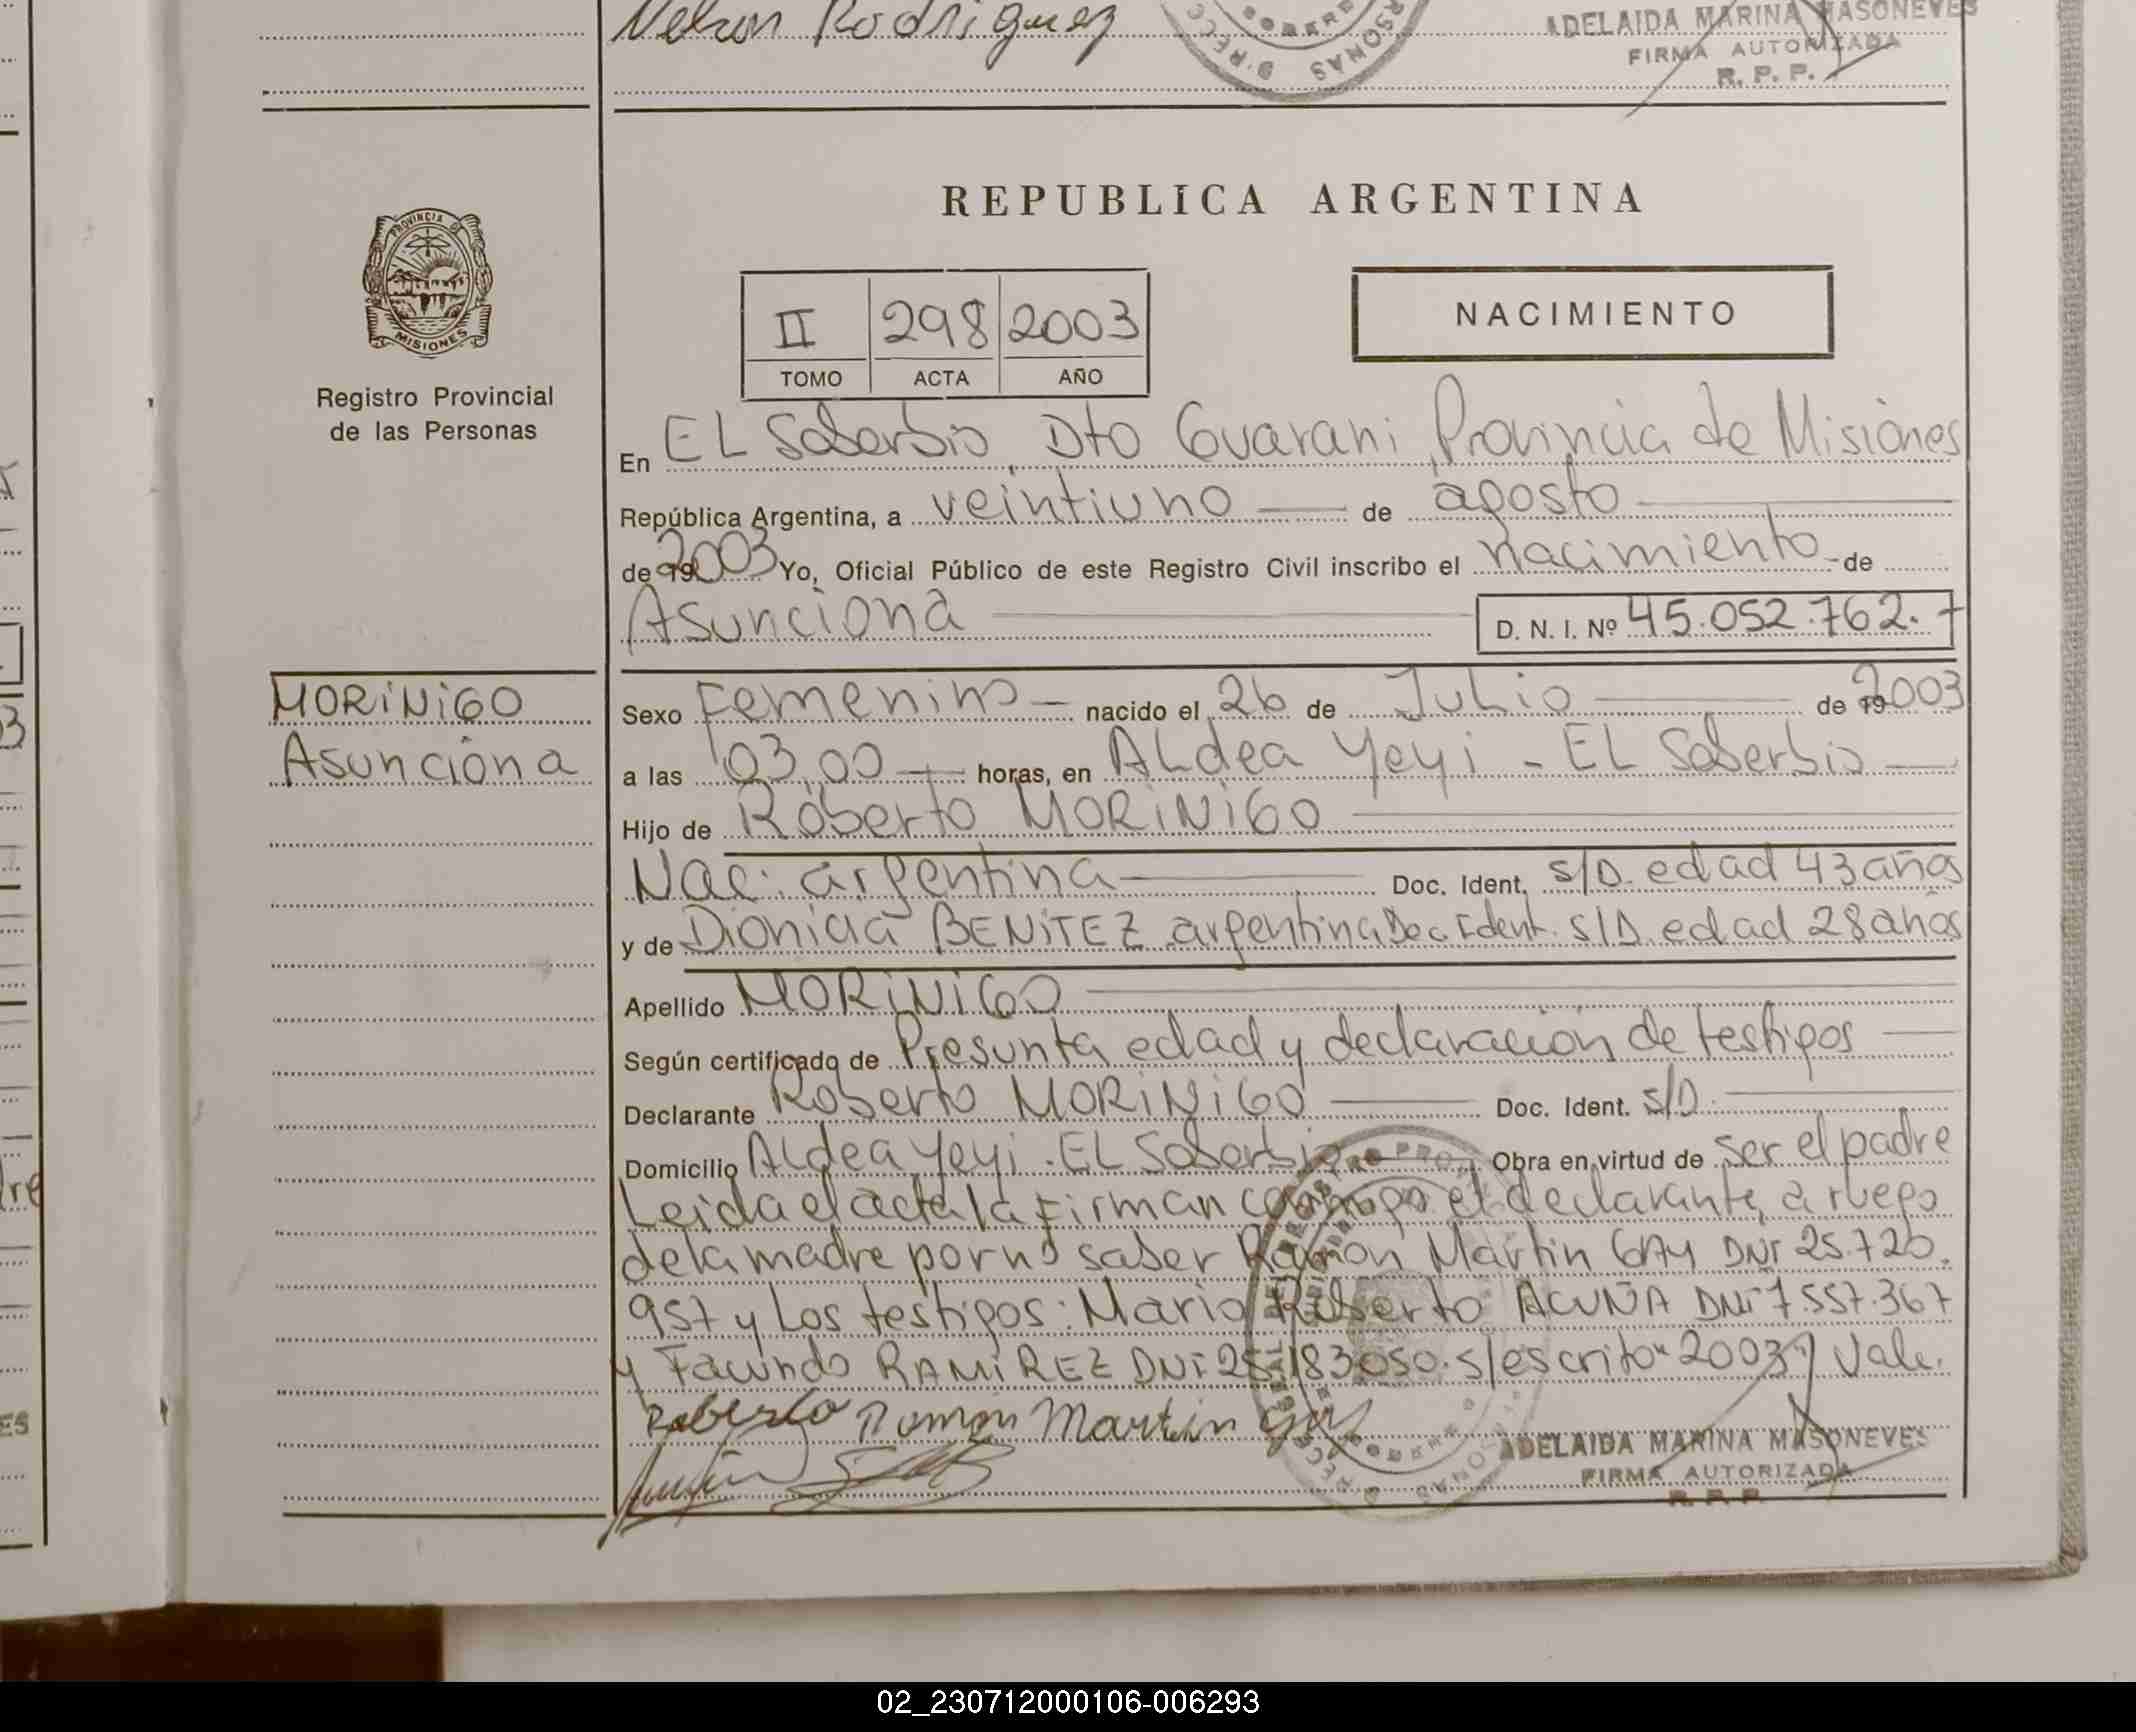 Nelson Rodriguez
ADELAIDA MARINA MASONEVES
FIRMA AUTORIZADA
R. P. P.
PROVINCIA DE MISIONES
Registro Provincial
de las Personas
REPUBLICA ARGENTINA
II 298 2003
TOMO ACTA AÑO
NACIMIENTO
En EL Soberbio, Dto Guarani Provincia de Misiones
República Argentina, a veintiuno de agosto
de 2003 Yo, Oficial Público de este Registro Civil inscribo el nacimiento de
Asunciona
D. N. I. Nº 45.052.762.7
MORiNiGO
Asunciona
Sexo Femenino nacido el 26 de Julio de 2003
a las 03,00 horas, en ALdea Yeyi - EL Soberbio
Hijo de Roberto MORiNiGO
Nac. argentina Doc. Ident. s/D. edad 43 años
y de Dionicia BENiTEZ argentina Doc Ident. s/D. edad 28 años
Apellido MORiNiGO
Según certificado de Presunta edad y declaración de testigos
Declarante Roberto MORiNiGO Doc. Ident. s/D.
Domicilio ALdea Yeyi - EL Soberbio Obra en virtud de ser el padre
Leida el acta la firman conmigo el declarante, a ruego
de la madre por no saber Ramón Martin GAY DNI 25.720.
957 y Los testigos: Mario Roberto ACUÑA DNI 7.557.367
y Facundo RAMiREZ DNI 25.183.050. s/escrito "2003" Vale.
Roberto Ramon Martin Gay
ADELAIDA MARINA MASONEVES
FIRMA AUTORIZADA
R. P. P.
02_230712000106-006293